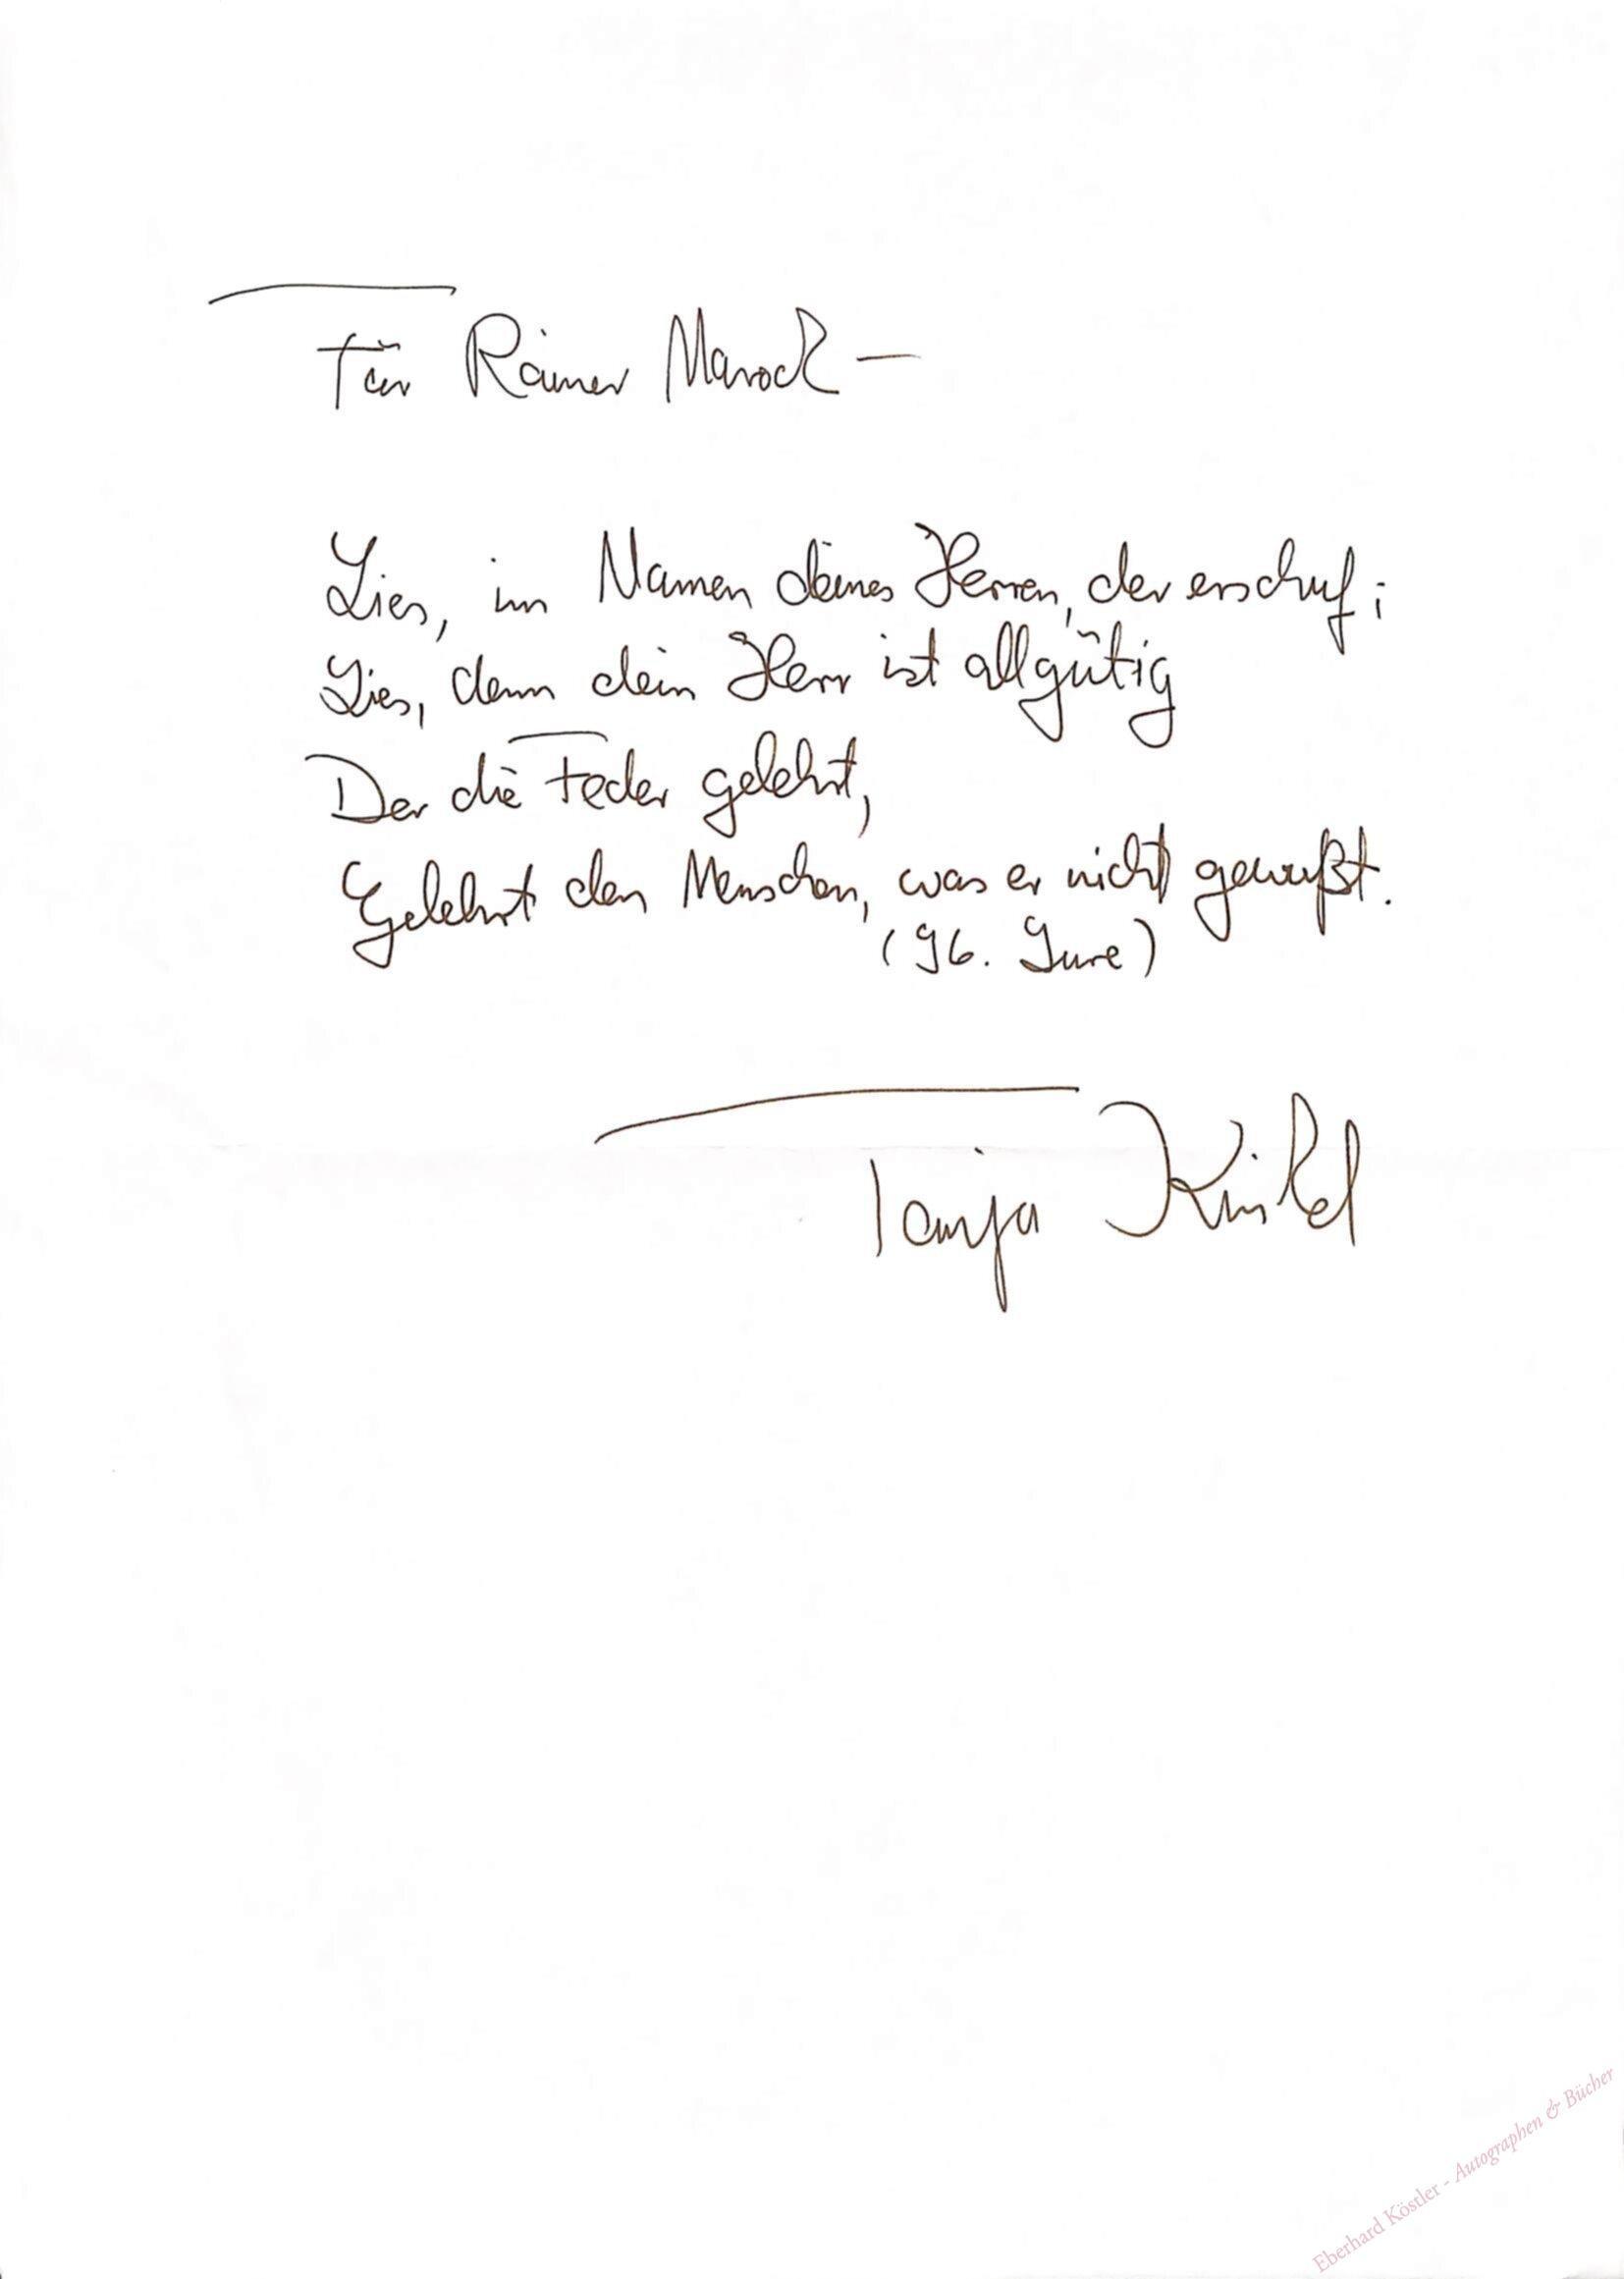 Für Rainer Marock –
Lies, im Namen deines Herren, der erschuf;
Lies, denn dein Herr ist allgütig
Der die Feder gelehrt,
Gelehrt den Menschen, was er nicht gewußt.
(96. Sure)
Tanja Kinkel
Eberhard Köstler - Autographen & Bücher